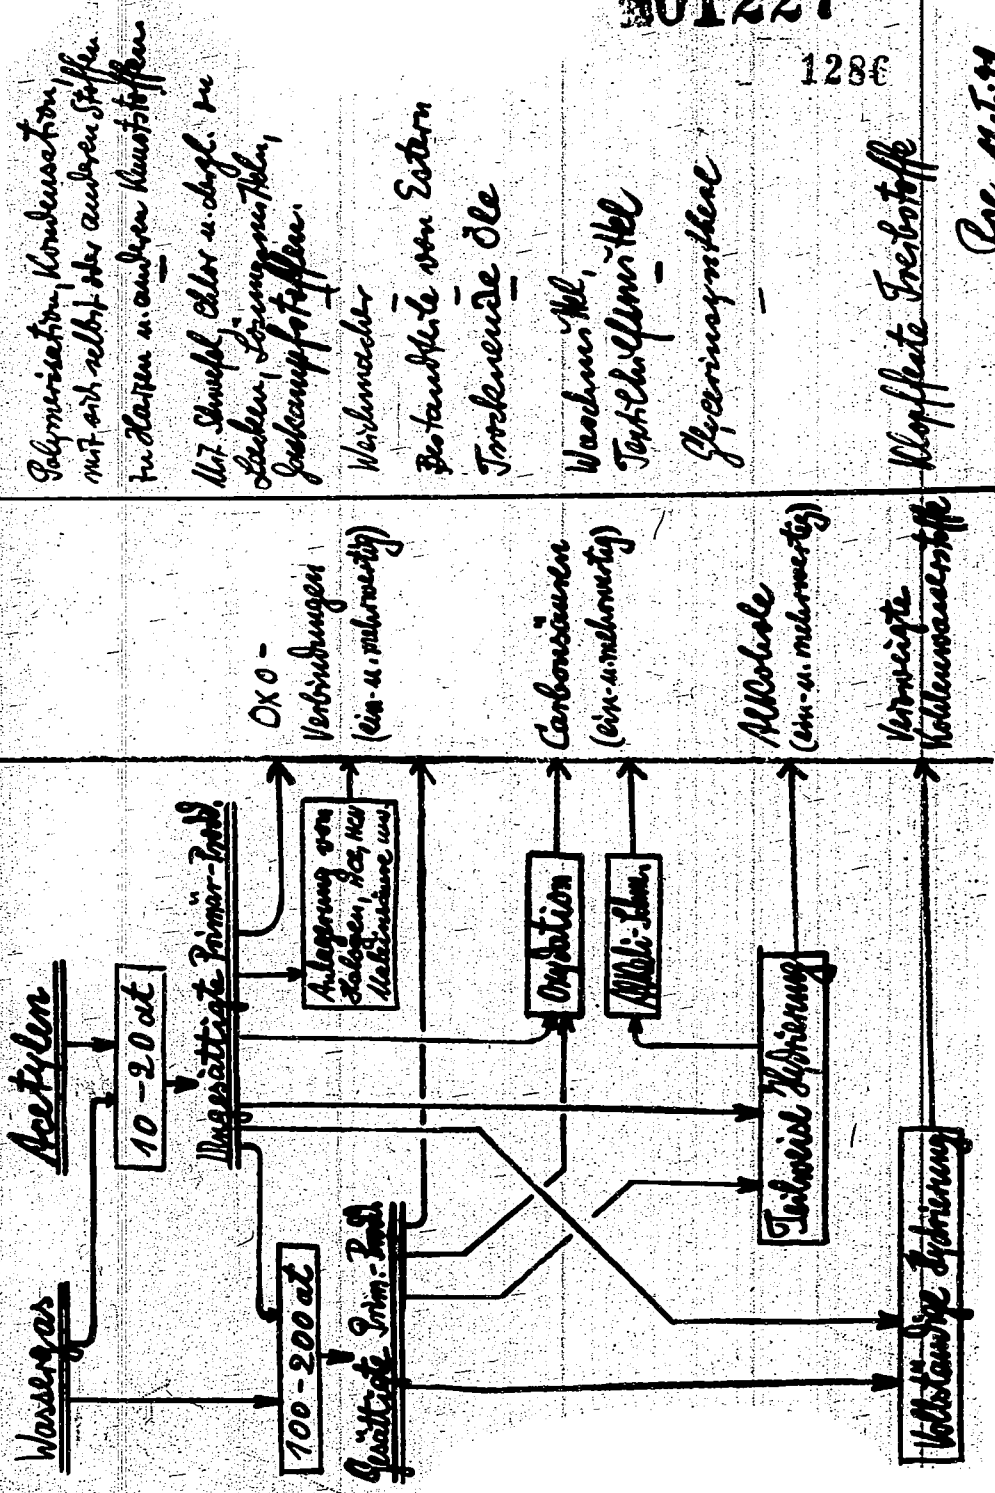 Wassergas
Acetylen
10-20 at
100-200 at
Ungesättigte Primär-Prod.
Gesättigte Prim.-Prod.
Anlagerung von
Halogen, HCl, HCN
Maleinsäure usw.
Oxydation
Alkali-Schm.
Teilweise Hydrierung
Vollständige Hydrierung
Oxo-
Verbindungen
(ein- u. mehrwertig)
Carbonsäuren
(ein- u. mehrwertig)
Alkohole
(ein- u. mehrwertig)
Verzweigte
Kohlenwasserstoffe
Polymerisation, Kondensation,
mit sich selbst oder anderen Stoffen
zu Harzen u. anderen Kunststoffen.
Mit Schwefel, Chlor u. dergl. zu
Lacken, Lösungsmitteln,
Weichmacher
Bestandteile von Estern
Trocknende Öle
Waschmittel,
Textilhilfsmittel
Glycerinsynthese
Klopffeste Treibstoffe
1286